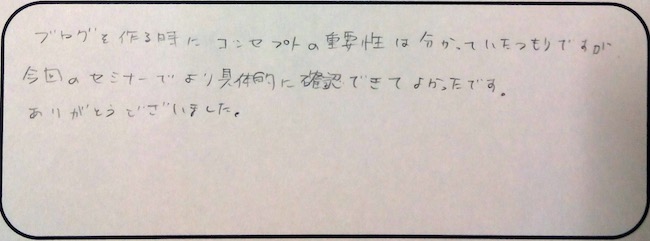 ブログを作る時に コンセプトの重要性は分かっていたつもりですが
今回のセミナーでより具体的に確認できてよかったです。
ありがとうございました。